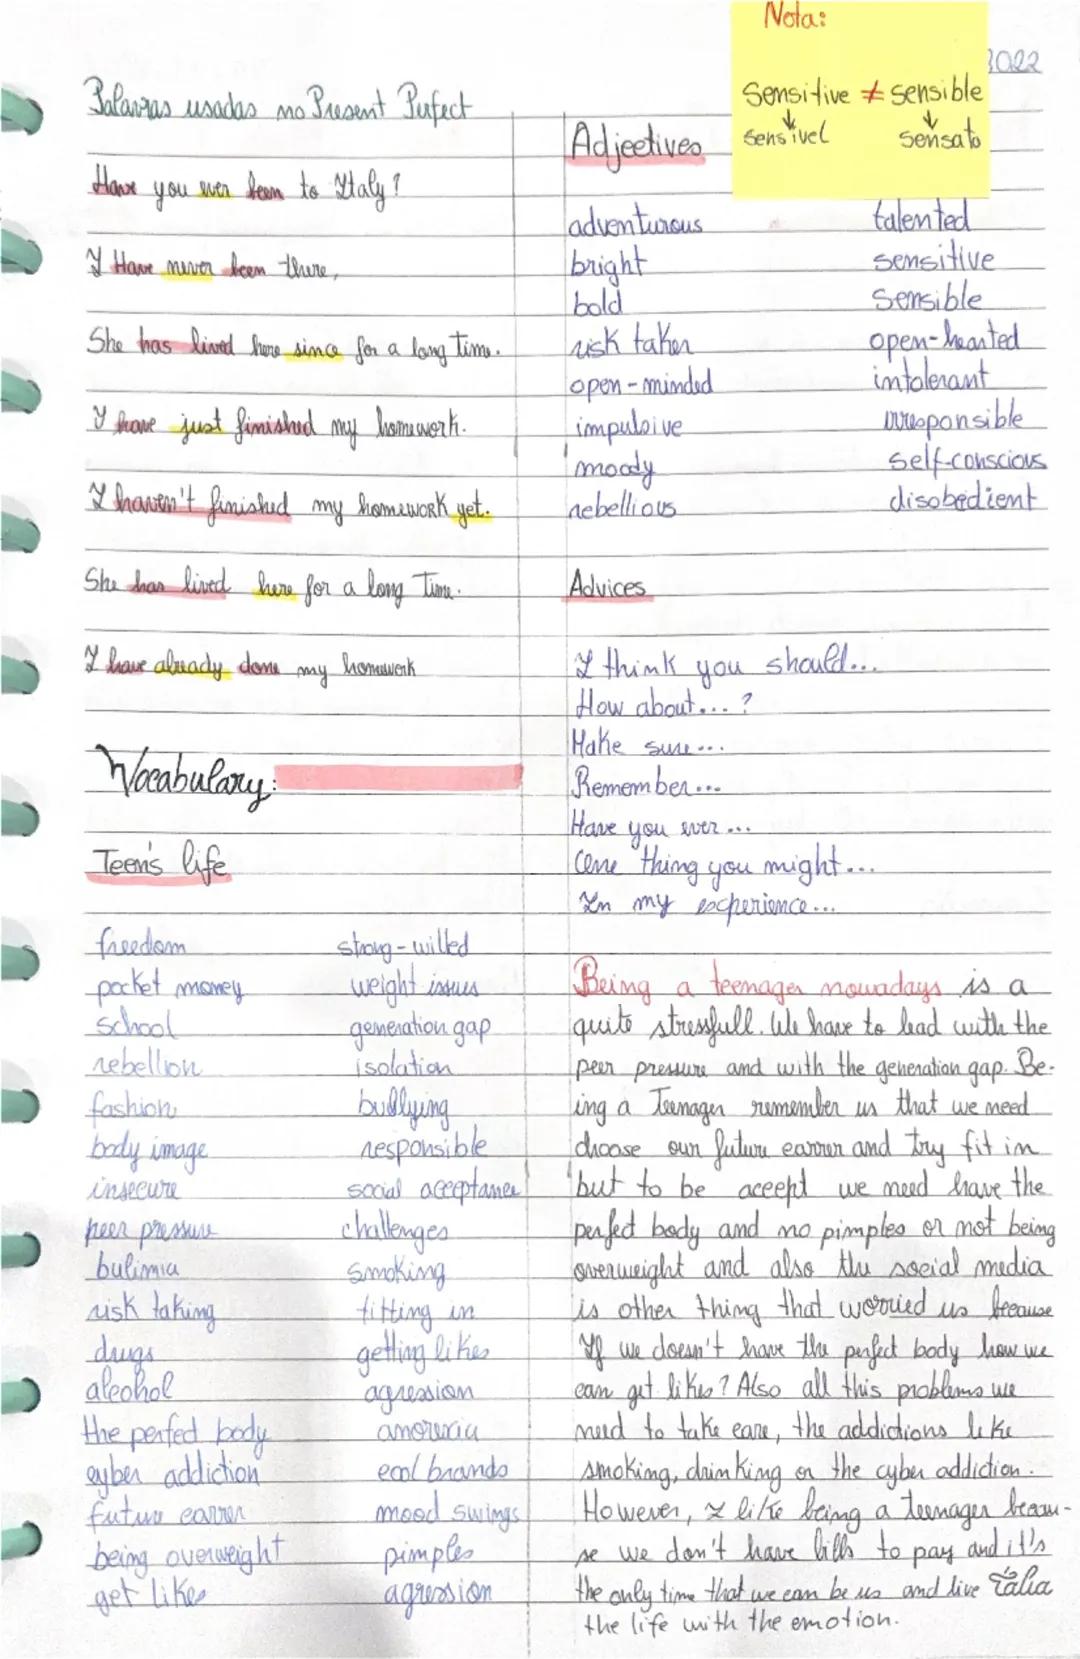 Nota:
Sensitive ≠ sensible
↓ ↓
sensível sensato
2022
Palavras usadas no Present Perfect
Have you ever been to Italy?
I Have never been there,
She has lived here since for a long time.
I have just finished my homework.
I haven't finished my homework yet.
She has lived here for a long Time.
I have already done my homework
Vocabulary:
Teen's life
freedom strong-willed
pocket money weight issues
school generation gap
rebellion isolation
fashion bullying
body image responsible
insecure social acceptance
peer pressure challenges
bulimia smoking
risk taking fitting in
drugs getting likes
alcohol agression
the perfect body anorexia
cyber addiction cool brands
future carrer mood swings
being overweight pimples
get likes agression
Adjectives
adventurous talented
bright sensitive
bold Sensible
risk taker open-hearted
open-minded intolerant
impulsive irresponsible
moody self-conscious
rebellious disobedient
Advices
I think you should...
How about...?
Make sure...
Remember...
Have you ever...
One thing you might...
In my experience...
Being a teenager nowadays is a
quite stressfull. We have to lead with the
peer pressure and with the generation gap. Be-
ing a Teenager remember us that we need
choose our future carrer and try fit in
but to be accept we need have the
perfect body and no pimples or not being
overweight and also the social media
is other thing that worried us because
If we doesn't have the perfect body how we
can get likes? Also all this problems we
need to take care, the addictions like
smoking, drinking or the cyber addiction.
However, I like being a teenager becau-
se we don't have bills to pay and it's
the only time that we can be us and live
the life with the emotion.
Tália